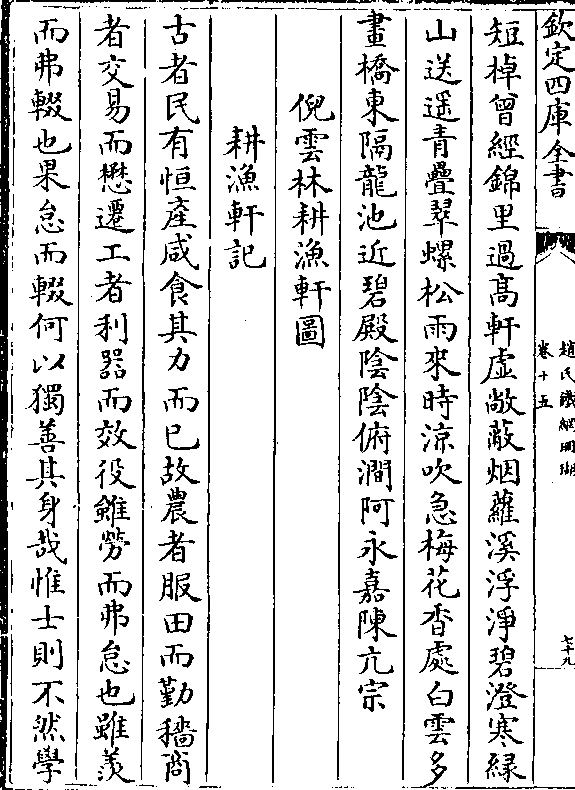 欽定四庫全書
趙氏鐵網珊瑚
卷十五
七十九
短棹曽經錦里過髙軒虚敞蔽烟蘿溪浮淨碧澄寒緑
山送遥青疊翠螺松雨來時凉吹急梅花香處白雲多
畫橋東隔龍池近碧殿陰陰俯澗阿永嘉陳亢宗
倪雲林耕漁軒圖
耕漁軒記
古者民有恒產咸食其力而已故農者服田而勤穡商
者交易而懋遷工者利器而效役雖勞而弗怠也雖羡
而弗輟也果怠而輟何以獨善其身哉惟士則不然學